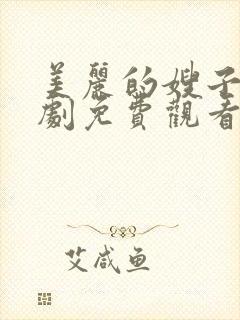 美麗的嫂子
劇免費觀看
艾咸鱼